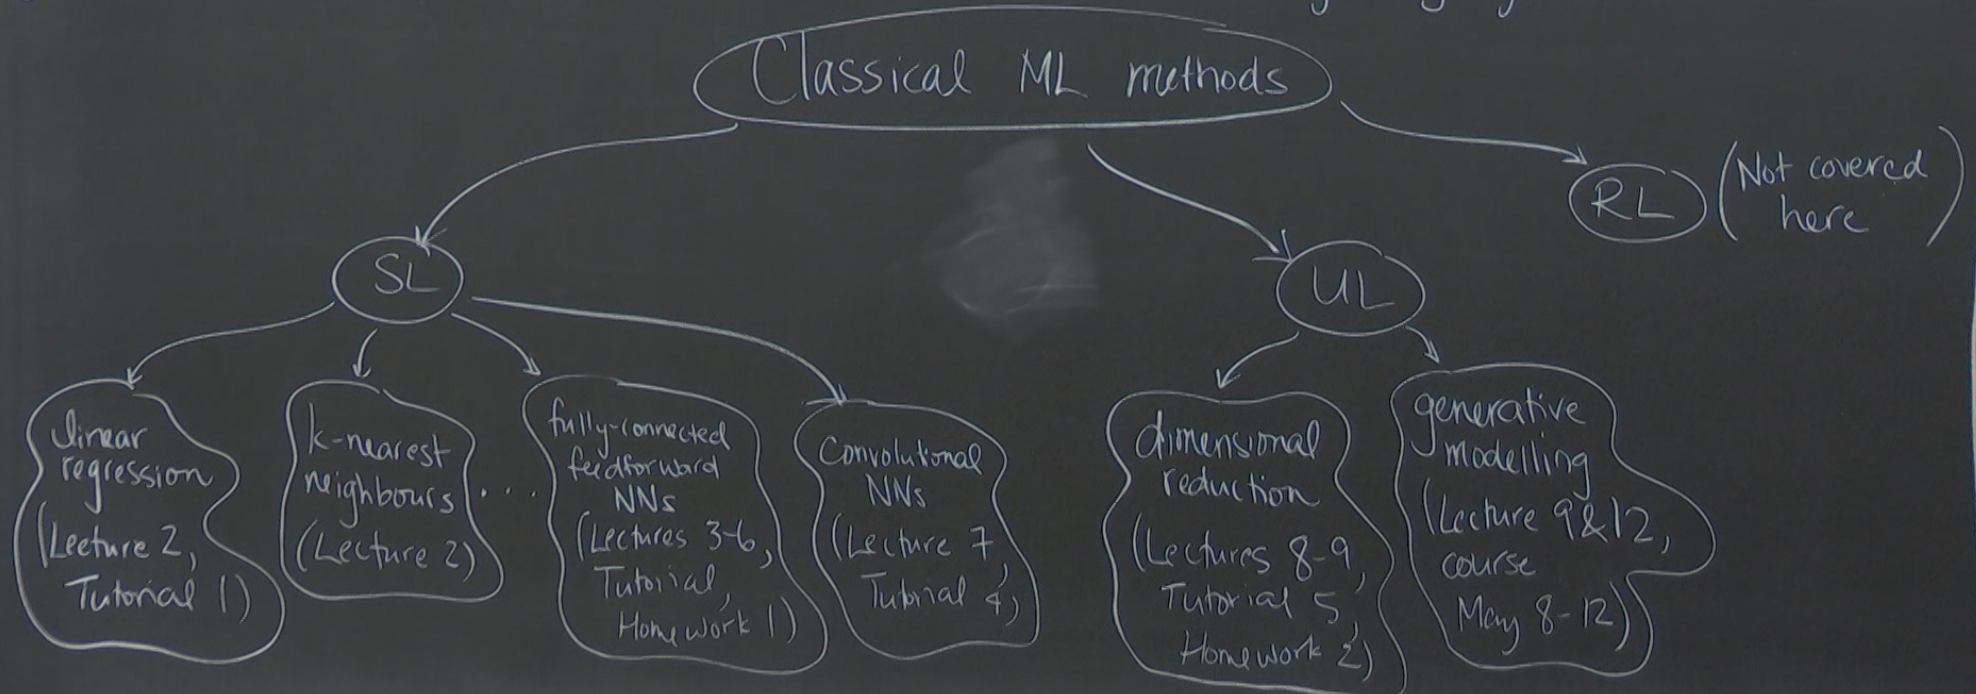 Classical ML methods
RL
(Not covered
here)
SL
UL
linear
regression
(Lecture 2,
Tutorial 1)
k-nearest
neighbours
(Lecture 2)
....
fully-connected
feedforward
NNs
(Lectures 3-6,
Tutorial,
Homework 1)
Convolutional
NNs
(Lecture 7,
Tutorial 4)
dimensional
reduction
(Lectures 8-9,
Tutorial 5,
Homework 2)
generative
modelling
(Lecture 9&12,
course
May 8-12)